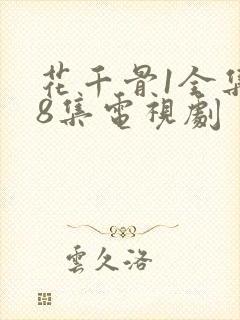 花千骨1全集
8集電視劇
雲久洛